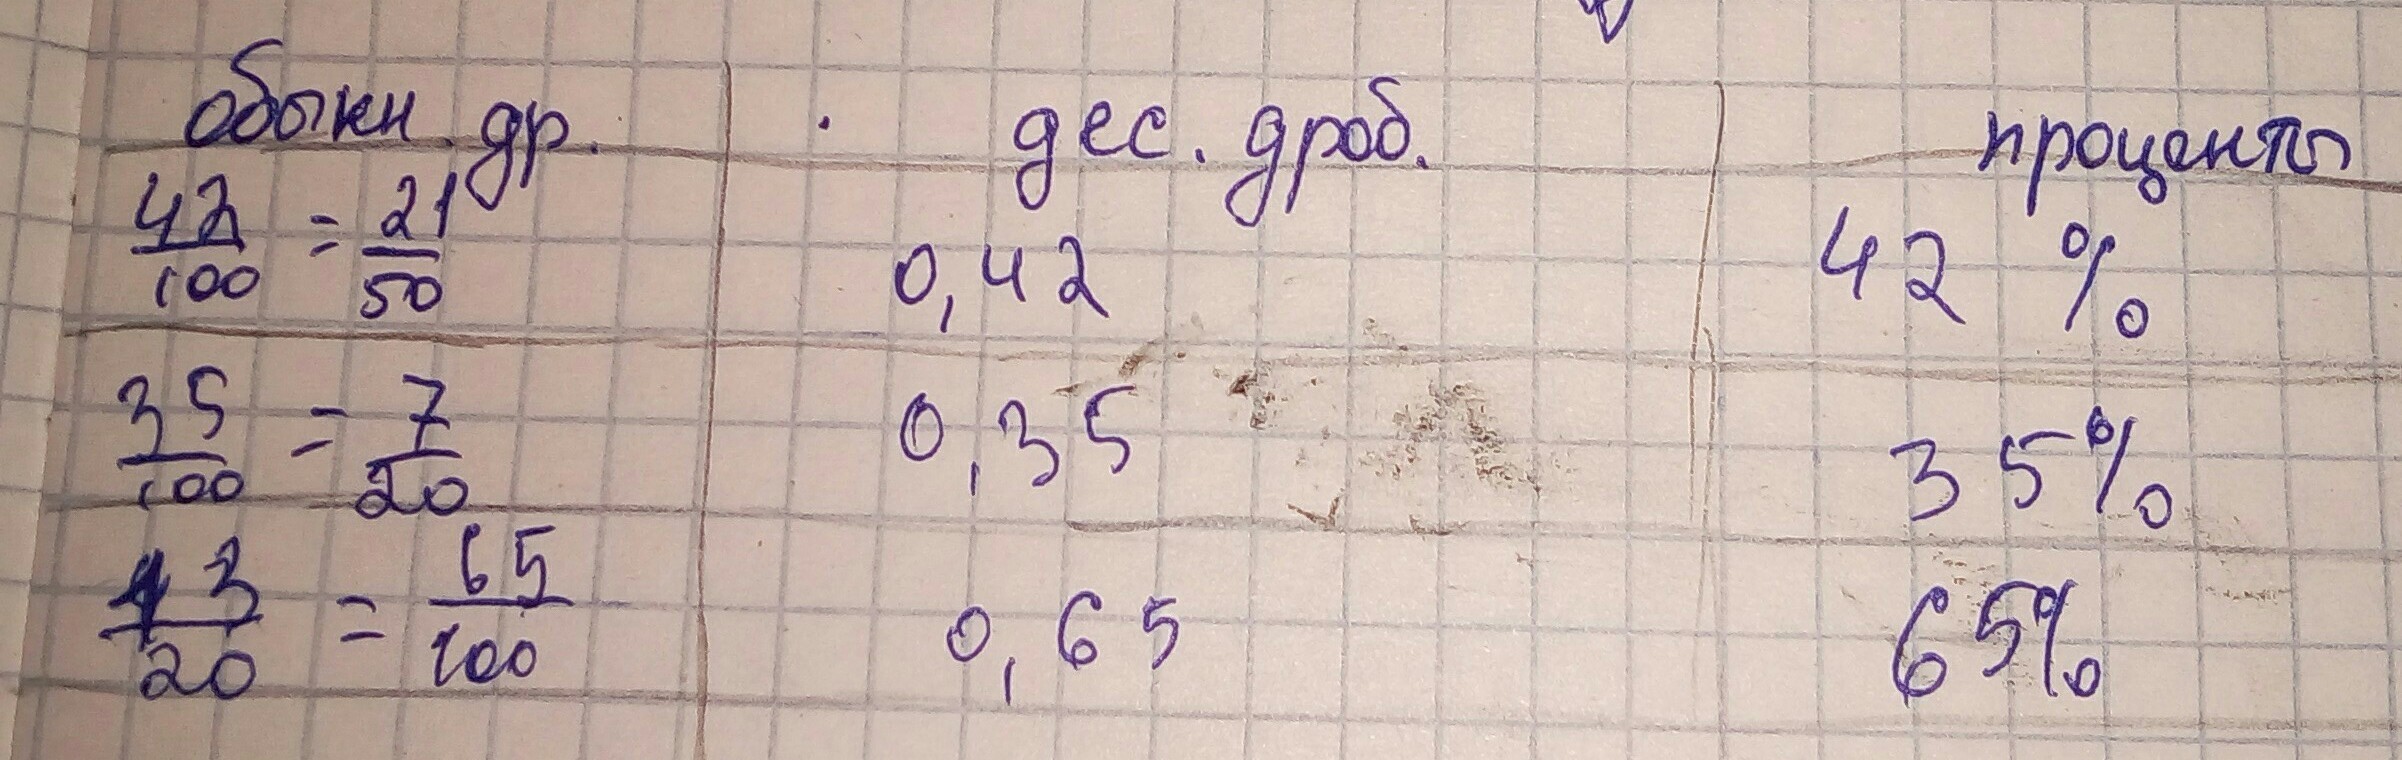 обыкн. др. дес. дроб. проценты
42/100 = 21/50 0,42 42 %
35/100 = 7/20 0,35 35%
13/20 = 65/100 0,65 65%